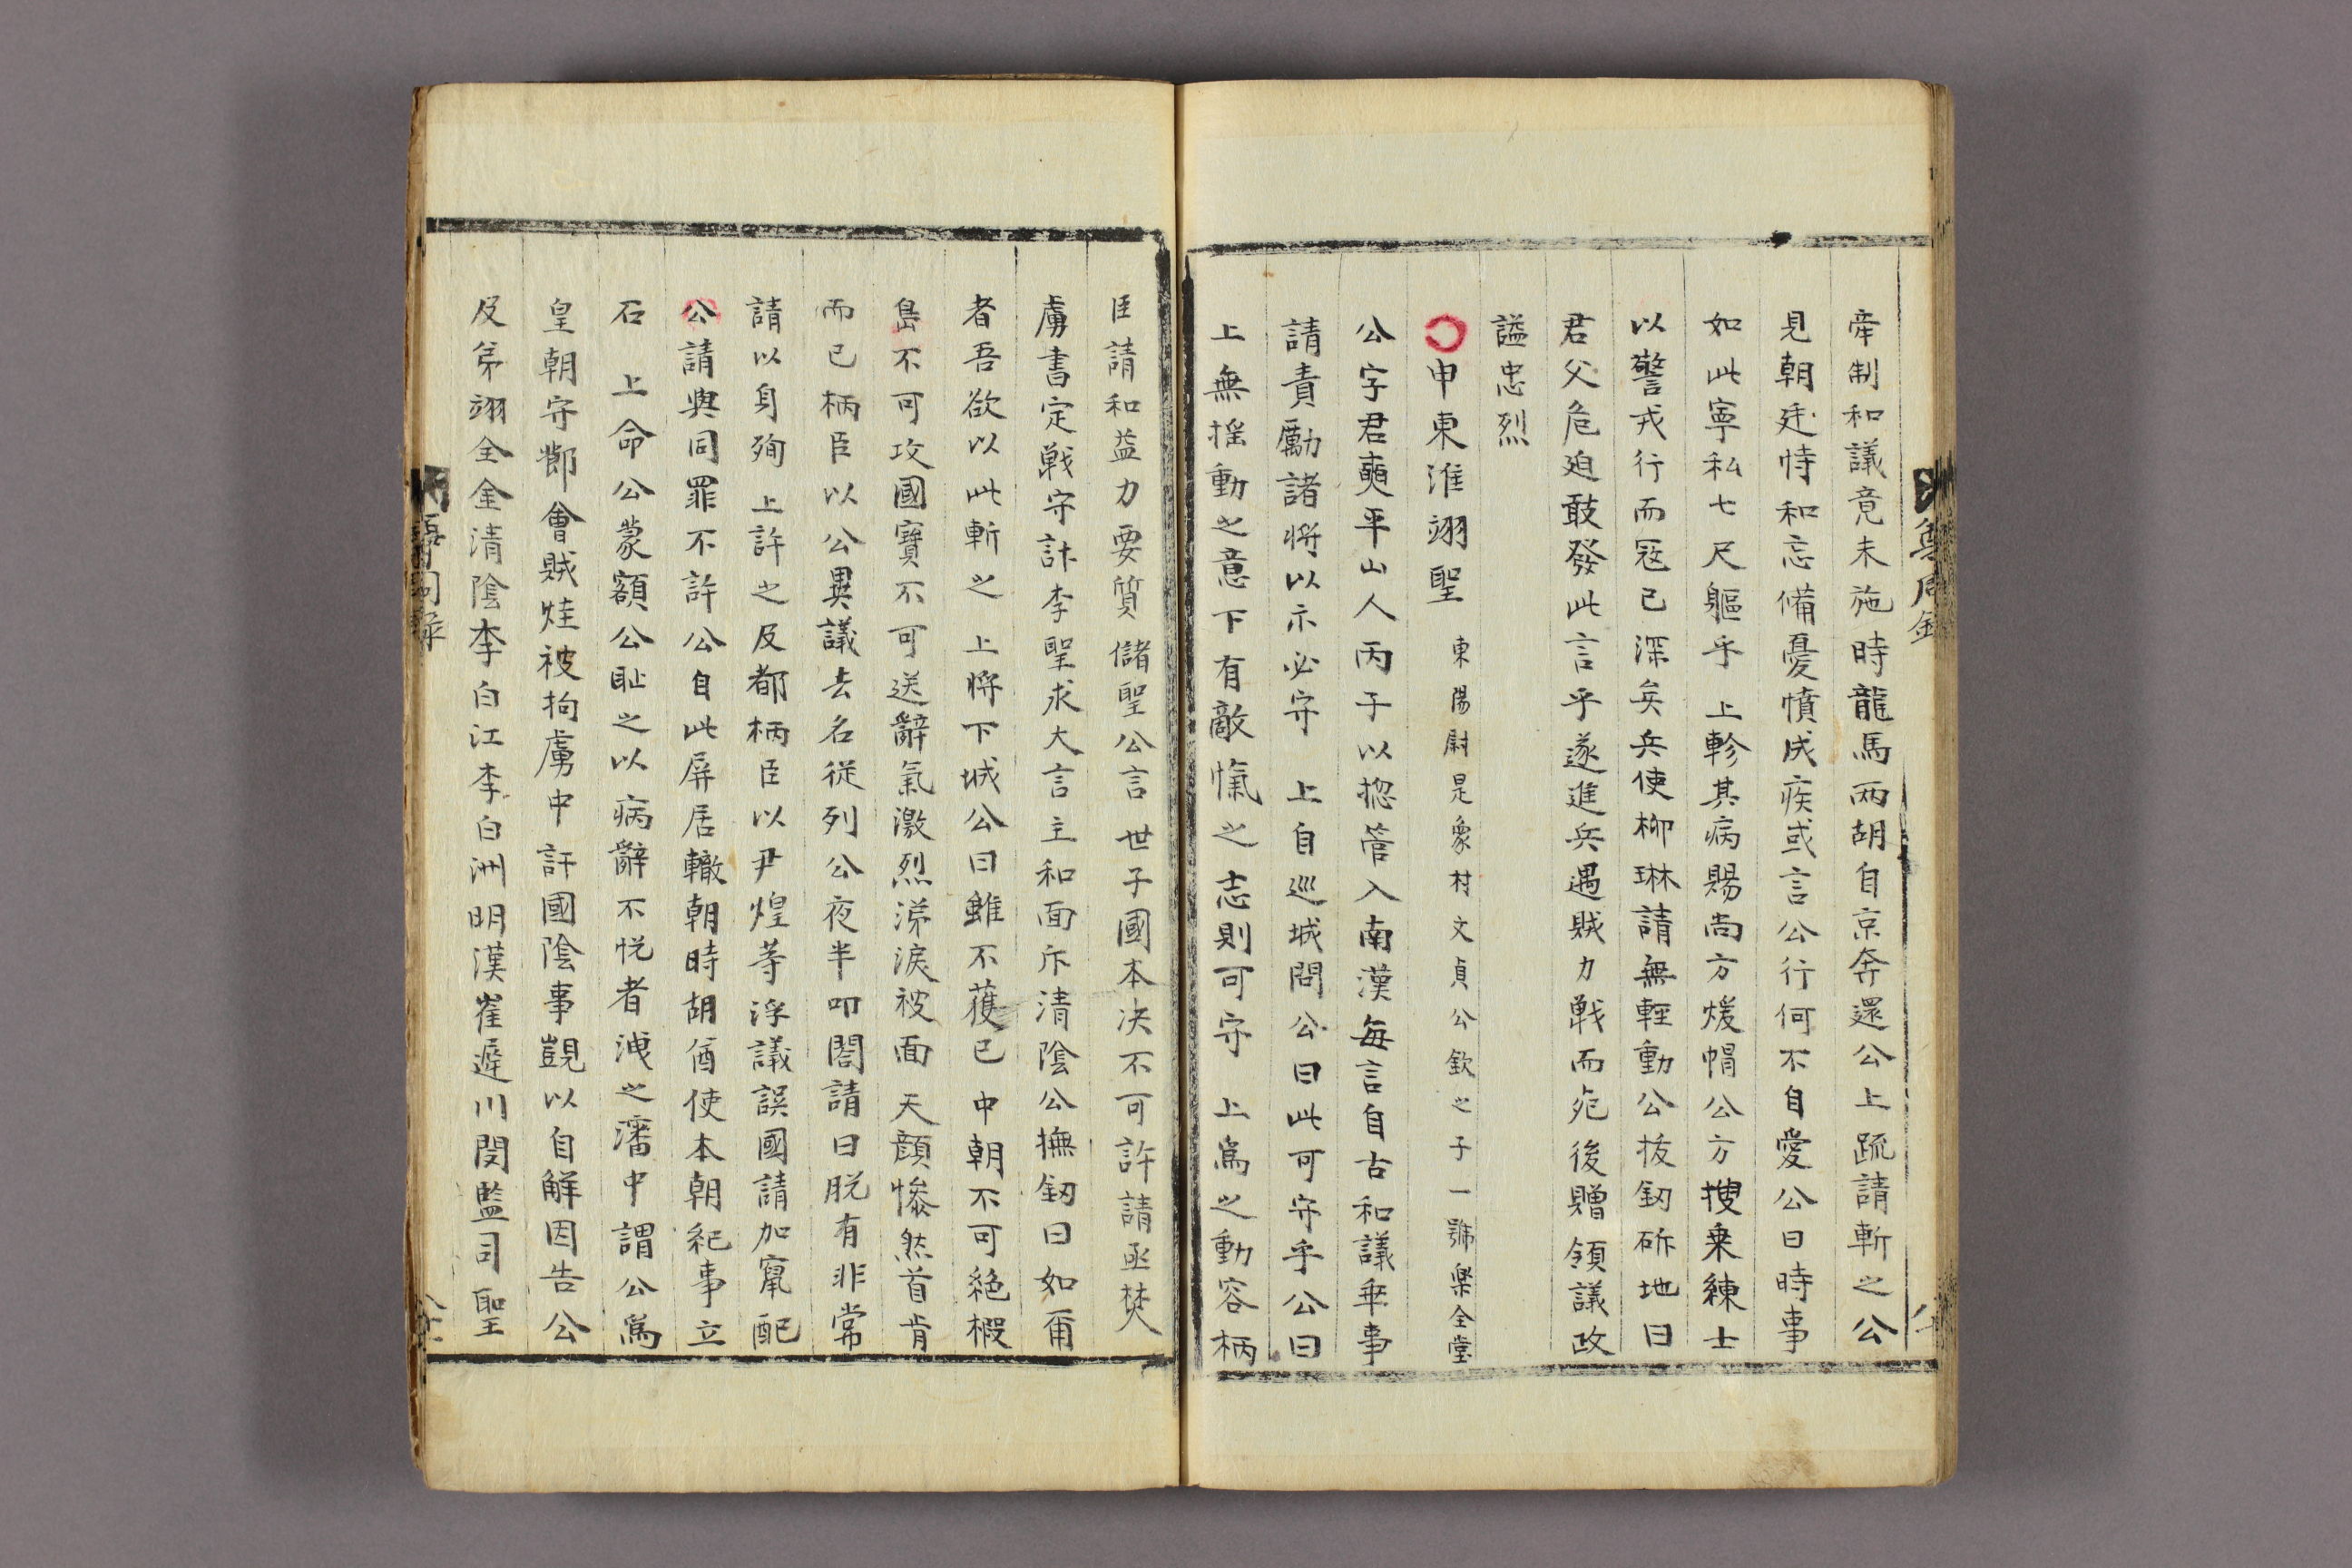 牽制和議竟未施時龍馬兩胡自京奔還公上疏請斬之公
見朝廷恃和忘備憂憤成疾或言公行何不自愛公曰時事
如此寧私七尺軀乎 上軫其病賜尚方煖帽公方搜乗練士
以警戎行而冦已深矣兵使柳琳請無輕動公拔釰斫地曰
君父危迫敢發此言乎遂進兵遇賊力戰而死後贈領議政
謚忠烈
申東淮翊聖 東陽尉是象村文貞公欽之子一號樂全堂
公字君奭平山人丙子以捴管入南漢每言自古和議無事
請責勵諸將以示必守 上自巡城問公曰此可守乎公曰
上無搖動之意下有敵愾之志則可守 上為之動容柄
臣請和益力要質 儲聖公言 世子國本决不可許請亟焚
虜書定戰守計李聖求大言主和面斥清陰公撫釰曰如甬
者吾欲以此斬之 上將下城公曰雖不獲已 中朝不可絕椵
島不可攻國寶不可送辭氣激烈涕淚被面 天顔慘然首肯
而已柄臣以公異議去名從列公夜半叩閤請曰脱有非常
請以身殉 上許之及都柄臣以尹煌等浮議誤國請加竄配
公請與同罪不許公自此屏居轍朝時胡酋使本朝紀事立
石 上命公蒙額公耻之以病辭不悦者洩之瀋中謂公為
皇朝守鄼會賊烓被拘虜中訐國陰事覬以自解因告公
及弟翊全金清陰李白江李白洲明漢崔遲川閔監司聖